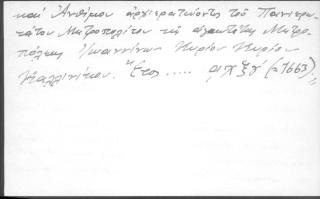 καί Ἀνθίμου ἀρχιερατεύοντος τοῦ Πανιερω-
τάτου Μητροπολίτου τῆς ἁγιωτάτης Μητρο-
πόλεως Ἰωαννίνων Κυρίου Κυρίου
Καλλινίκου. Ἔτος ..... αχξγ' (=1663).